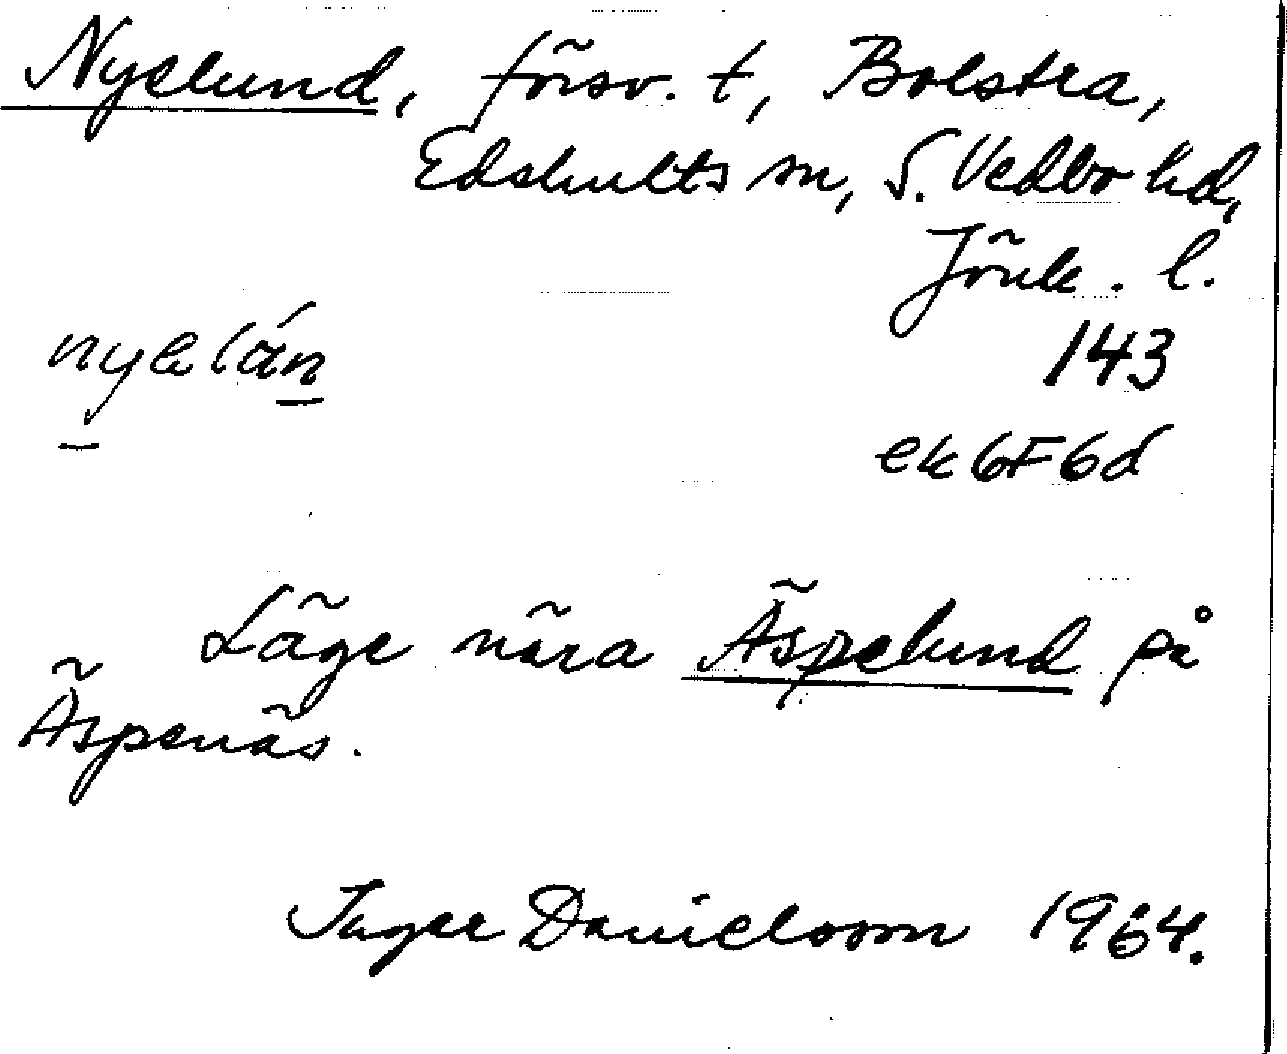 Nyelund, försv. t, Bolstra,
Edshults sn, S. Vedbo hd,
Jönk. l.
nyəlán 143
ek 6F6d
Läge nära Äspelund på
Äspenäs.
Inger Danielsson 1964.